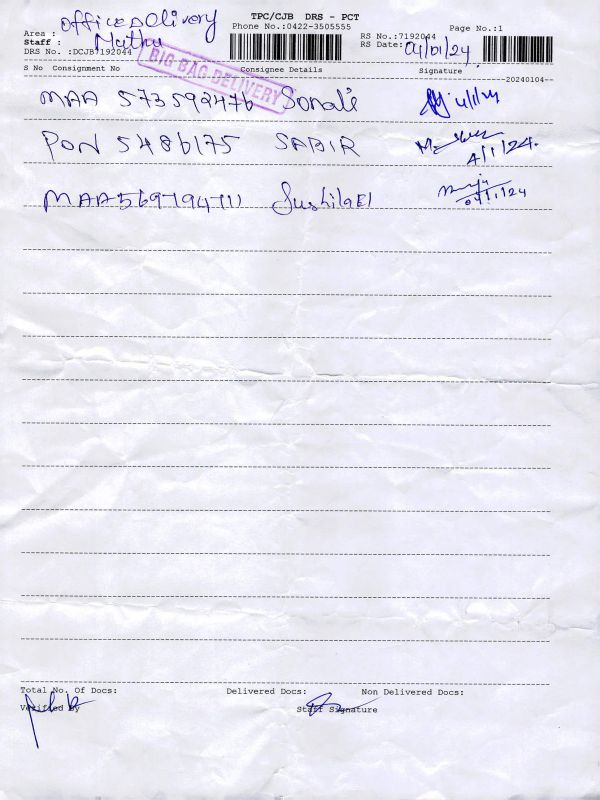 TPC/CJB DRS - PCT
Phone No.:0422-3505555
Page No.:1
Area : Office Delivery
Staff : Muthu
RS No.:7192044
DRS No. :DCJB7192044
RS Date: 04/01/24
BIG BAG DELIVERY
S No Consignment No Consignee Details Signature
20240104
MAA 573592476 Sonali 4/1/24
PON 5486175 SABIR
4/1/24.
MAA569794711 Sushila
04/1/24
Total No. Of Docs: Delivered Docs: Non Delivered Docs:
Verified By Staff Signature